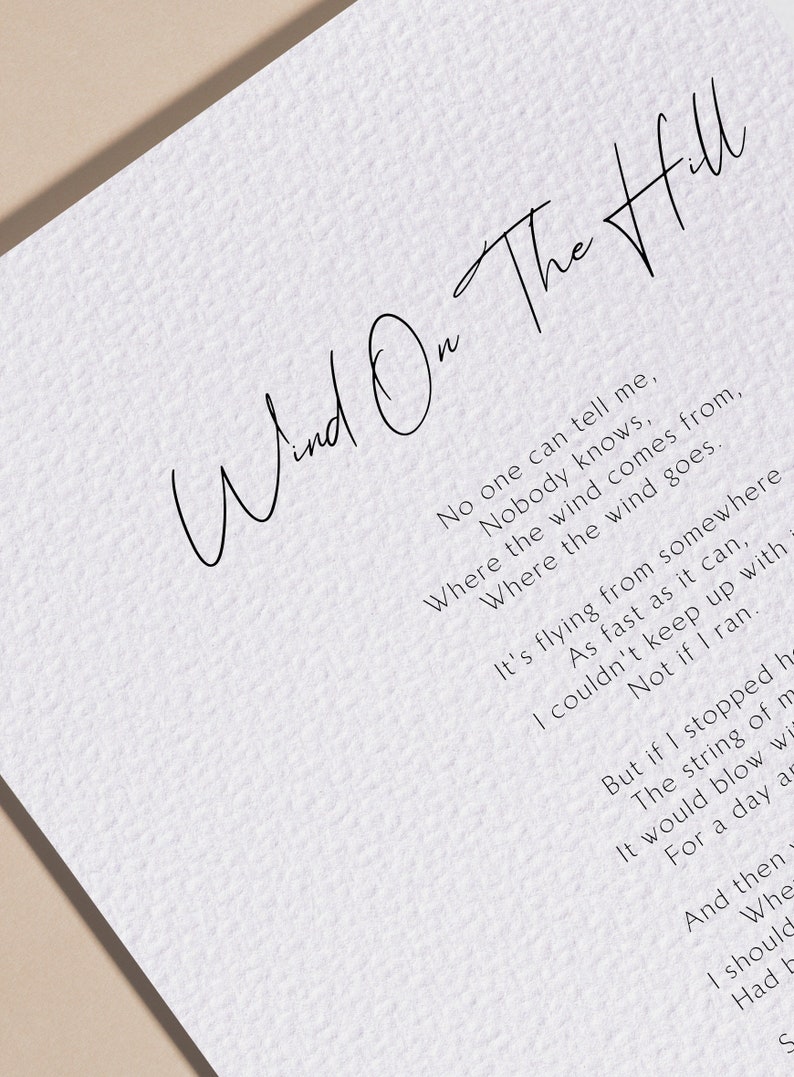 Wind On The Hill
No one can tell me,
Nobody knows,
Where the wind comes from,
Where the wind goes.
It's flying from somewhere
As fast as it can,
I couldn't keep up with
Not if I ran.
But if I stopped
The string of
It would blow
For a day
And then
I should
Had